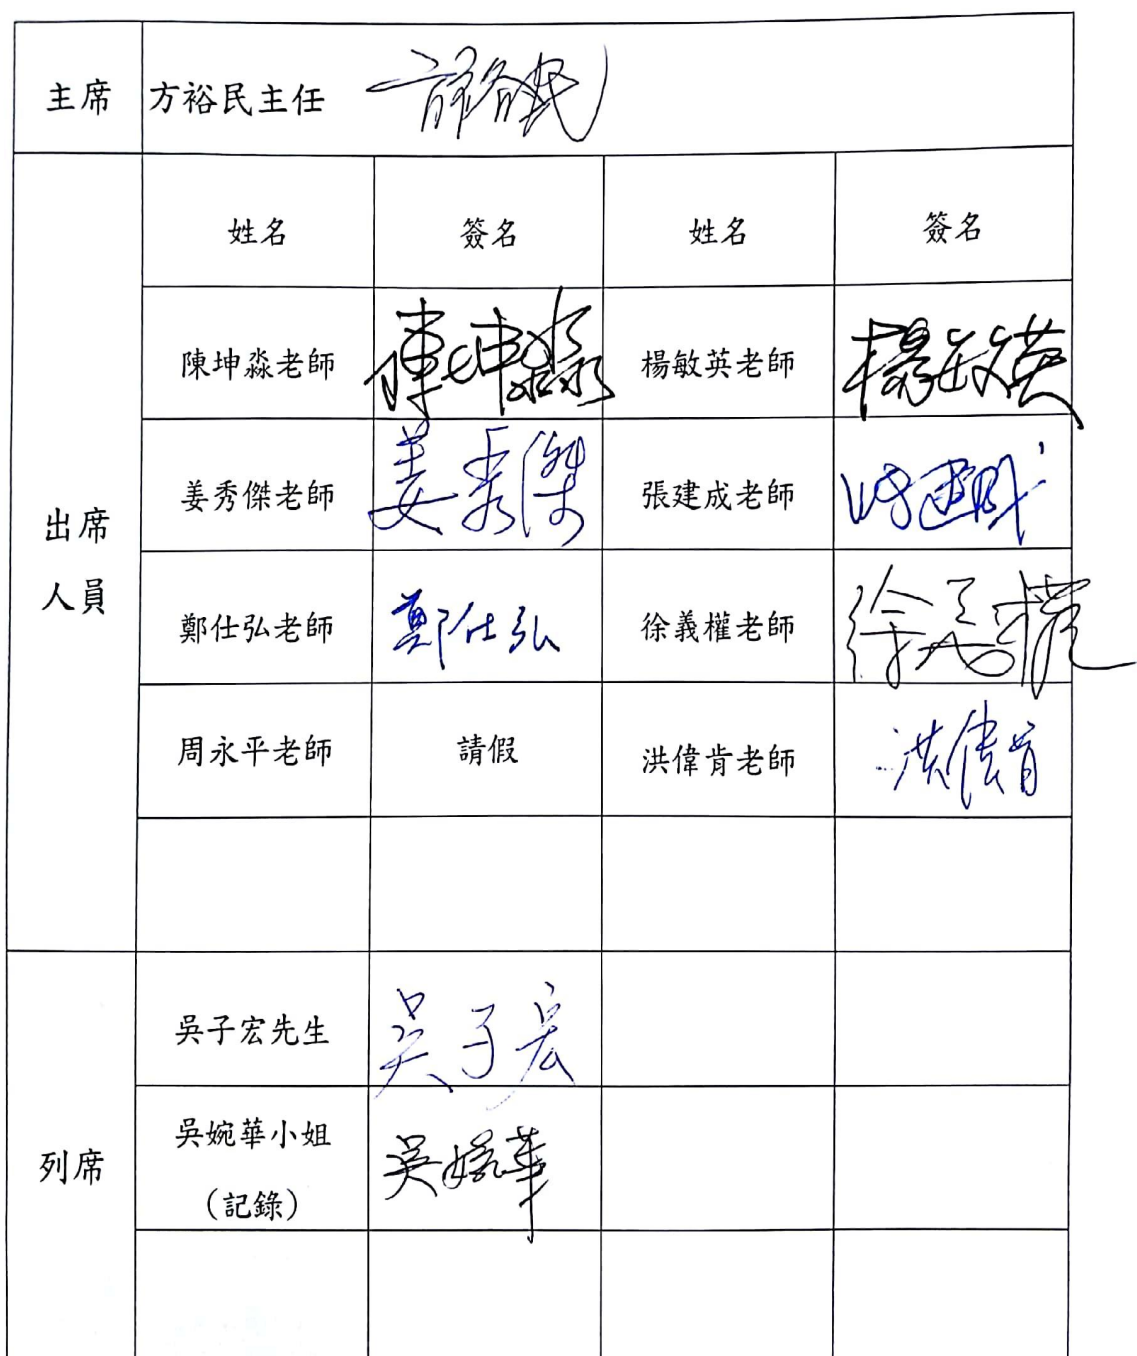 主席 方裕民主任 方裕民
姓名 簽名 姓名 簽名
陳坤淼老師 陳坤淼 楊敏英老師 楊敏英
姜秀傑老師 姜秀傑 張建成老師 張建成
出席
人員
鄭仕弘老師 鄭仕弘 徐義權老師 徐義權
周永平老師 請假 洪偉肯老師 洪偉肯
吳子宏先生 吳子宏
列席
吳婉華小姐 吳婉華
(記錄)